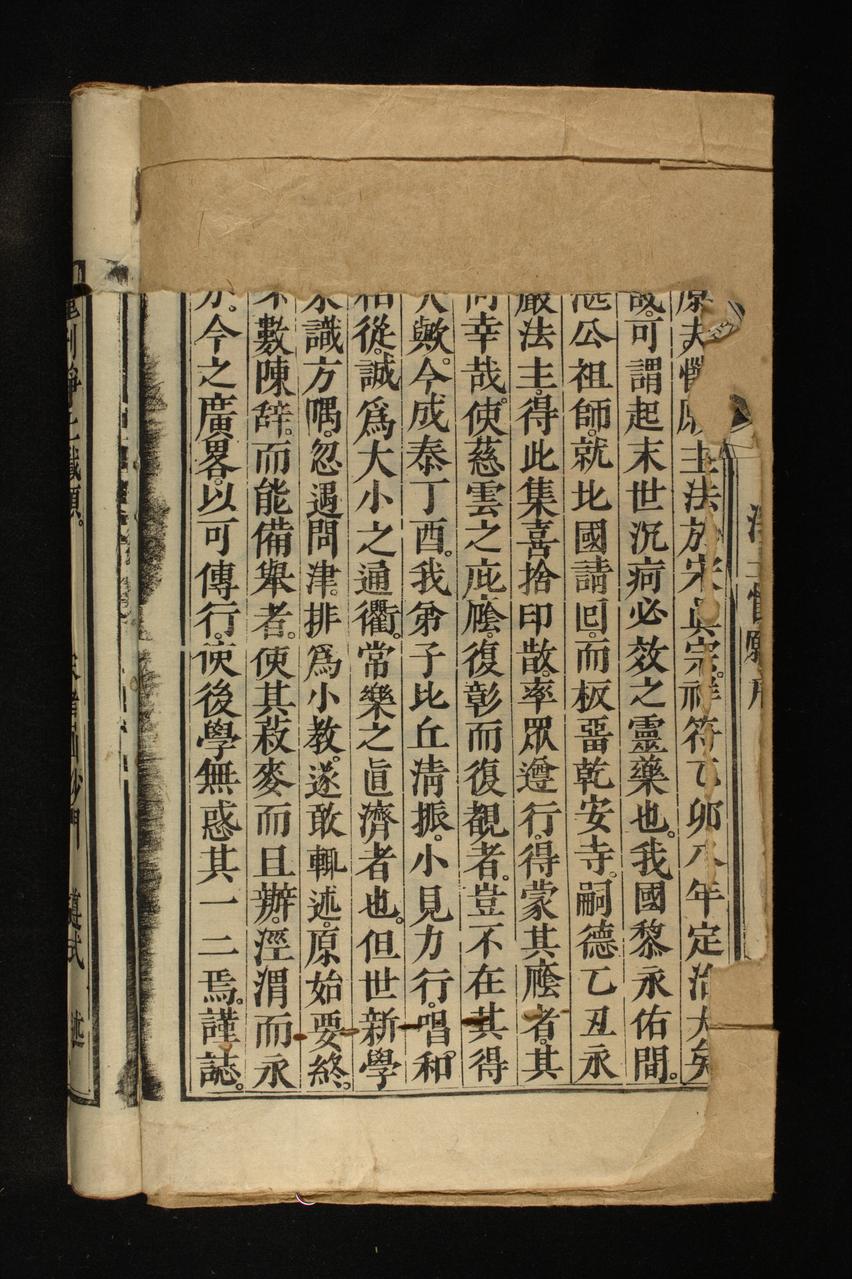 淨土懺願序
原夫懺願主法於宋眞宗。祥符乙卯八年定治大矣
哉。可謂起末世沉疴必效之靈藥也。我國黎永佑間。
湛公祖師。就北國請囘。而板畱乾安寺。嗣德乙丑永
嚴法主。得此集喜捨印散。率眾遵行。得蒙其廕者。其
何幸哉。使慈雲之庇廕。復彰而復覩者。豈不在其得
人歟。今成泰丁酉。我弟子比丘清振。小見力行。唱和
相從。誠爲大小之通衢。常樂之眞濟者也。但世新學
未識方喁。忽遇問津。排爲小教。遂敢輙述。原始要終。
不數陳辞。而能備舉者。使其菽麥而且辦。涇渭而永
分。今之廣畧。以可傳行。使後學無惑其一二焉。謹誌。
重刊淨土懺願。
沙門 遵式 述